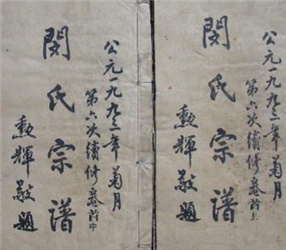 公元一九九三年菊月
第六次續修卷首上
閔氏宗譜
勲輝敬題
公元一九九三年菊月
第六次續修卷首中
閔氏宗譜
勲輝敬題